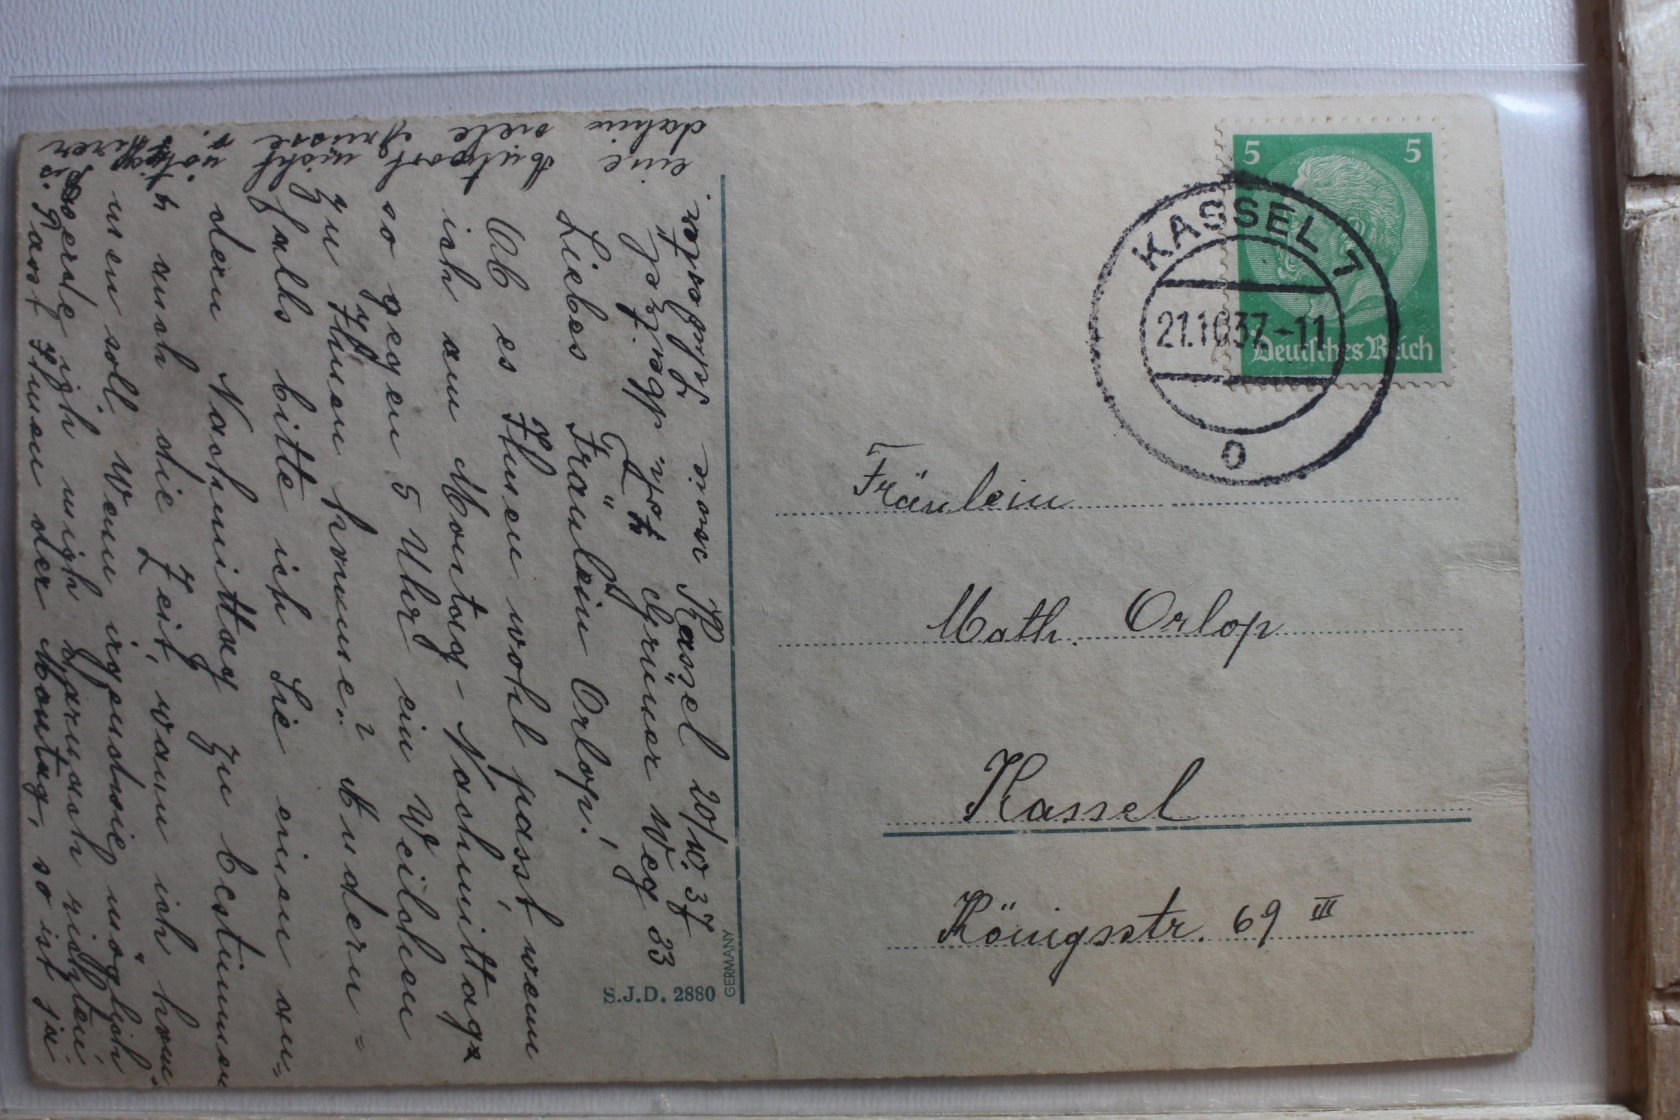 5 5
Deutsches Reich
KASSEL 7
21.10.37.-11
o
Fräulein
Math. Orlop
Kassel
Königsstr. 69 III
GERMANY
S.J.D. 2880
Kassel 20/10. 37
Grüner Weg 33
Liebes Fräulein Orlop!
Ob es Ihnen wohl passt, wenn
ich am Montag-Nachmittag
so gegen 5 Uhr ein Weilchen
zu Ihnen komme? Andern-
falls bitte ich Sie einen an-
dern Nachmittag zu bestimmen
u. auch die Zeit, wann ich kom-
men soll. Wenn irgendwie möglich
werde ich mich danach richten.
Passt Ihnen der Montag, so ist ja
eine Antwort nicht nötig.
viele Grüsse